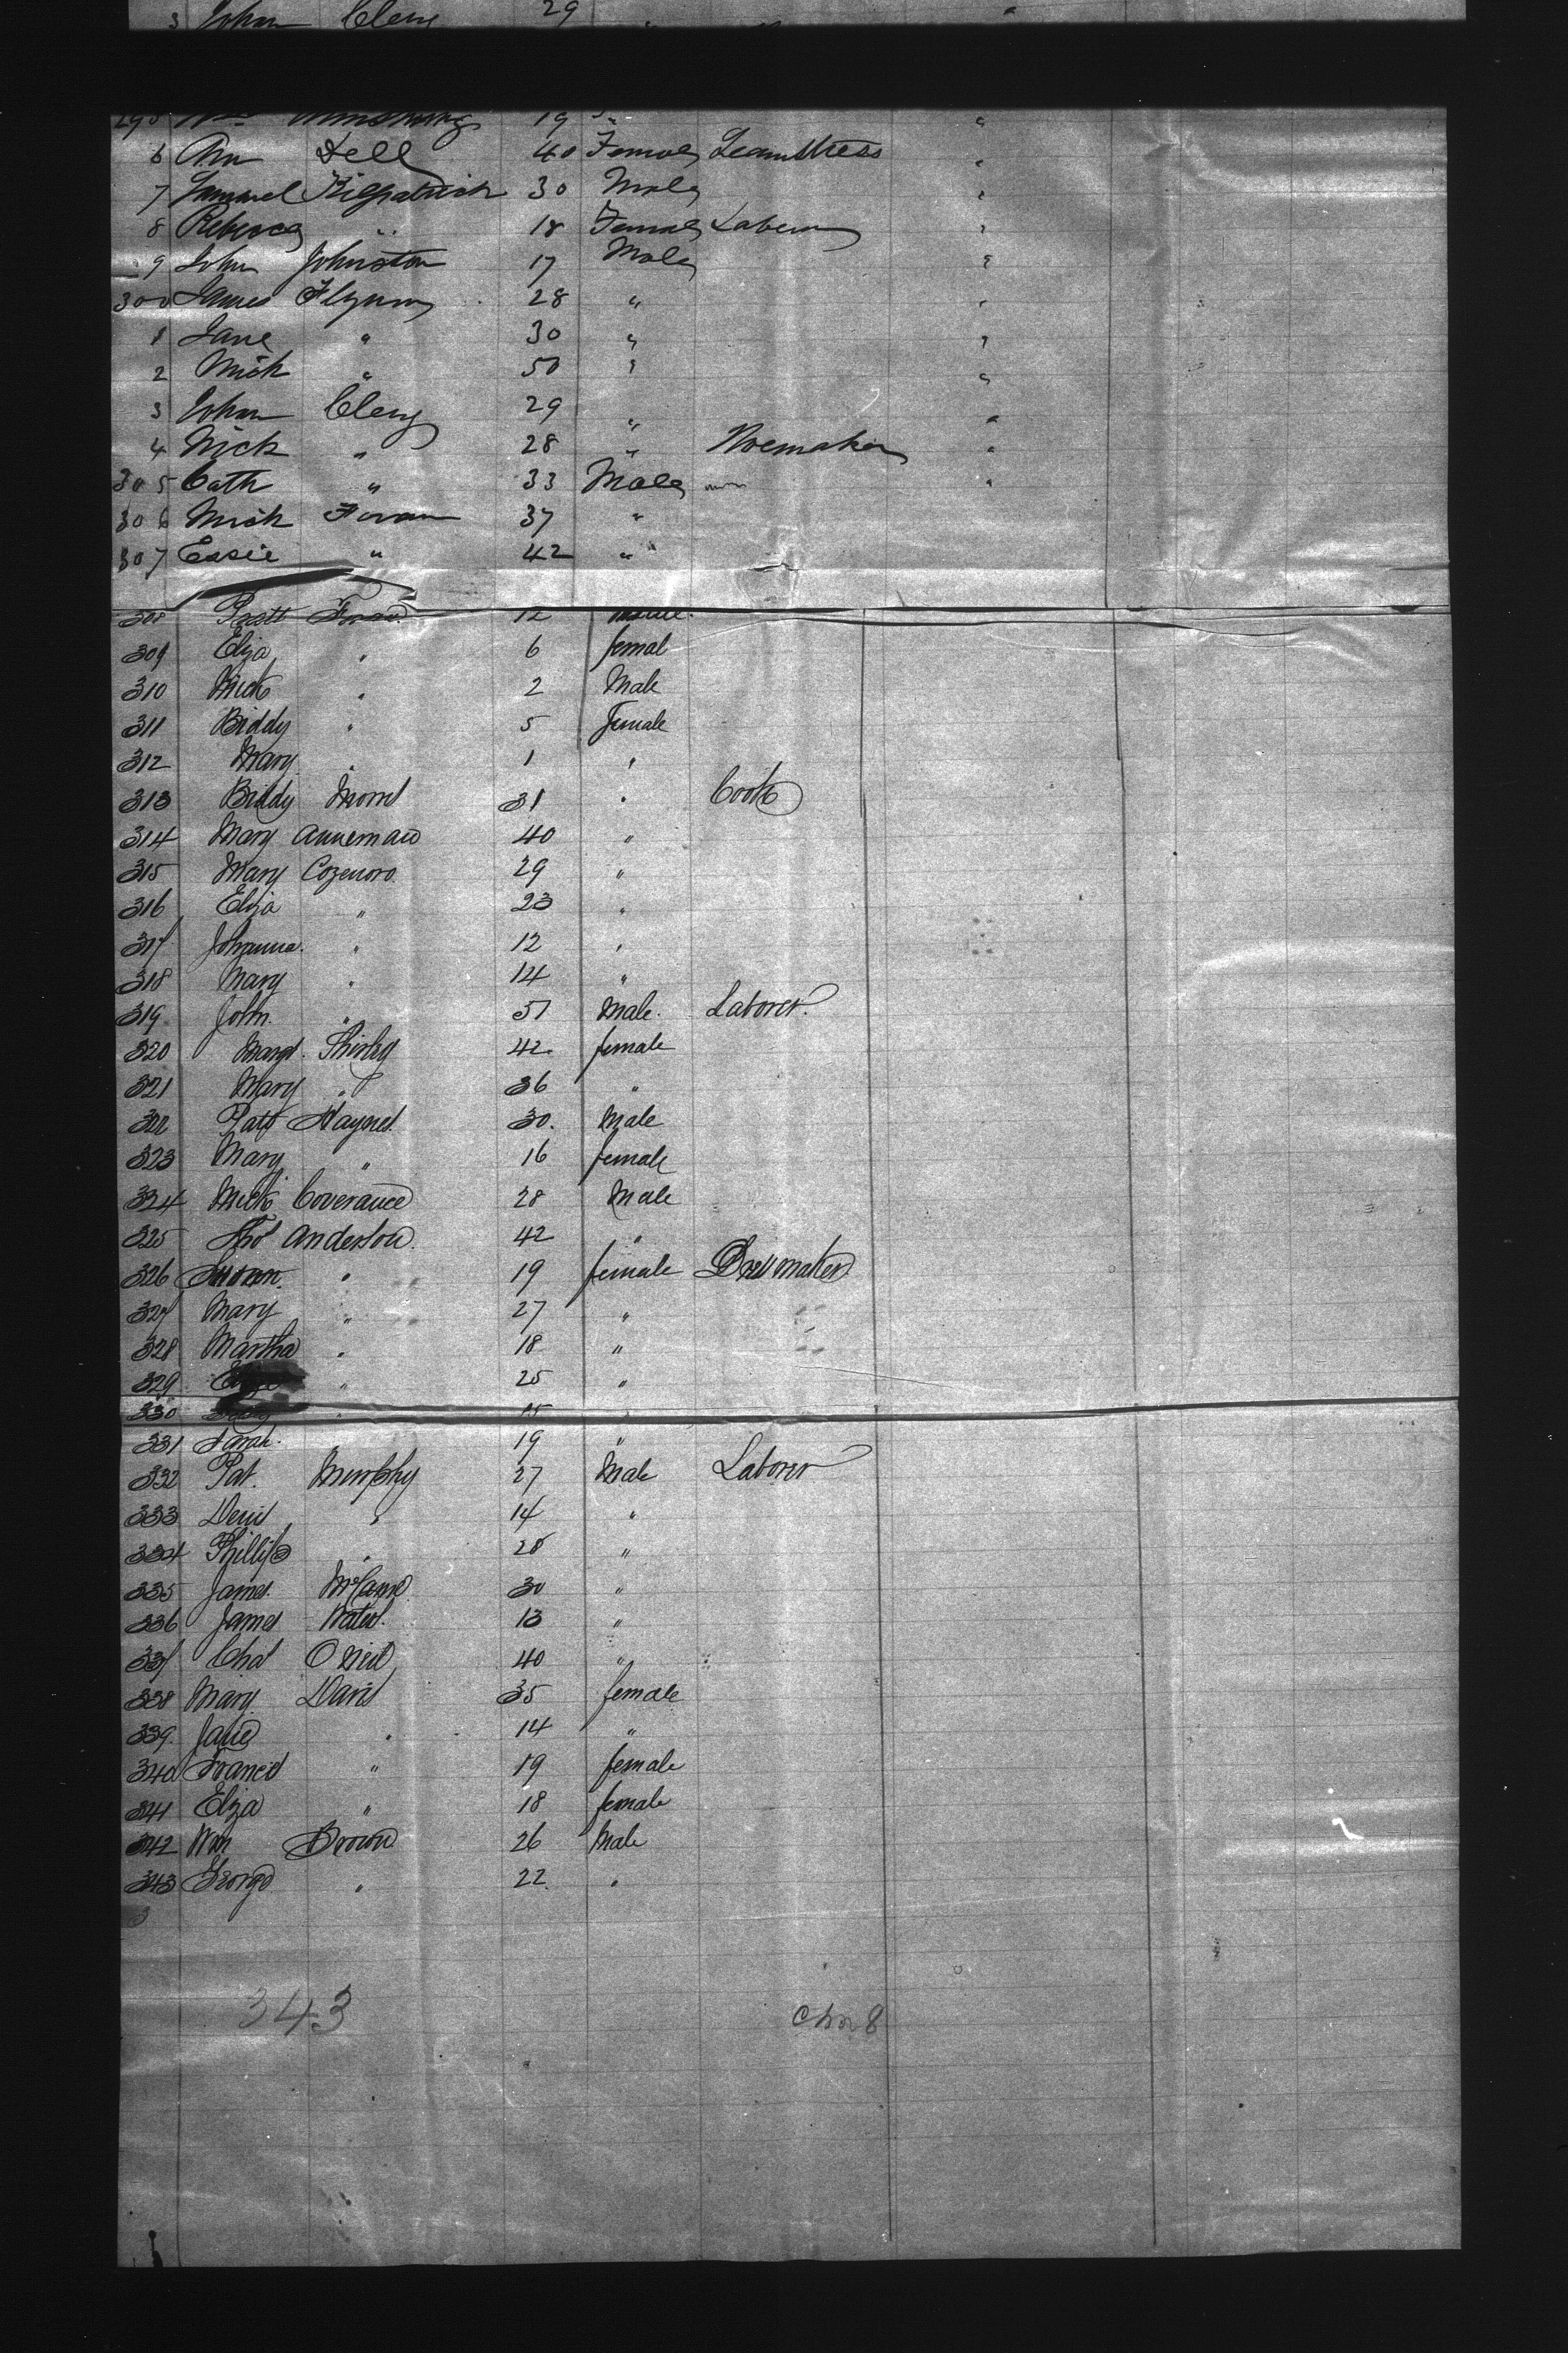 3 John Clery 29 "
295 Wm Armstrong 19 " "
6 Ann Kell 40 Female Seamstress "
7 Samuel Kilpatrick 30 Male "
8 Rebecca " 18 Female Laborer "
9 John Johnston 17 Male "
300 James Flynn 28 " "
1 Jane " 30 " "
2 Mick " 50 " "
3 John Clery 29 " "
4 Mick " 28 " "
305 Cath " 33 Male "
306 Mick Foran 37 "
307 Essie " 42 "
308 Patt Foran 12 male
309 Eliza " 6 femal
310 Mick " 2 Male
311 Biddy " 5 Female
312 Mary " 1 "
313 Biddy 31 " Cook
314 Mary 40 "
315 Mary 29 "
316 Eliza " 23 "
317 Johanna " 12 "
318 Mary " 14 "
319 John " 51 Male Laborer
320 Margt Shirley 42 female
321 Mary " 36 "
322 Patt Haynes 30 Male
323 Mary " 16 female
324 Mick 28 Male
325 Thos Anderson 42 "
326 Susan " 19 female Dressmaker
327 Mary " 27 "
328 Martha " 18 "
329 " 25 "
330 " 15 "
331 Sarah 19 "
332 Pat Murphy 27 Male Laborer
333 Denis " 14 "
334 Phillip " 28 "
335 James McCann 30 "
336 James Waters 13 "
337 Chas O Neil 40 "
338 Mary Davis 35 female
339 Jane " 14 "
340 Francis " 19 female
341 Eliza " 18 female
342 Wm Brown 26 Male
343 George " 22 "
3
343 chn 8